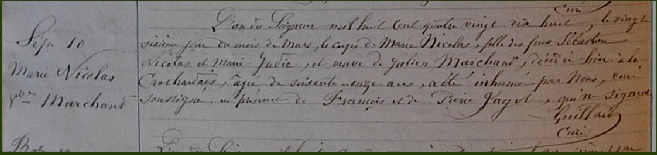 Curé
L'an du Seigneur mil huit cent quatre vingt dix huit, le vingt
Sép. 10
sixième jour du mois de Mars, le corps de Marie Nicolas, fille des feus Sébastien
Marie Nicolas
Nicolas et Marie Judic, et veuve de Julien Marchand, décédée hier à la
Vve Marchand
âgée de soixante-onze ans, a été inhumé par Nous, curé
soussigné, en présence de François et de Pierre Jagot, qui n'ont signé
Guillard
Curé
L'an du Seigneur mil huit cent